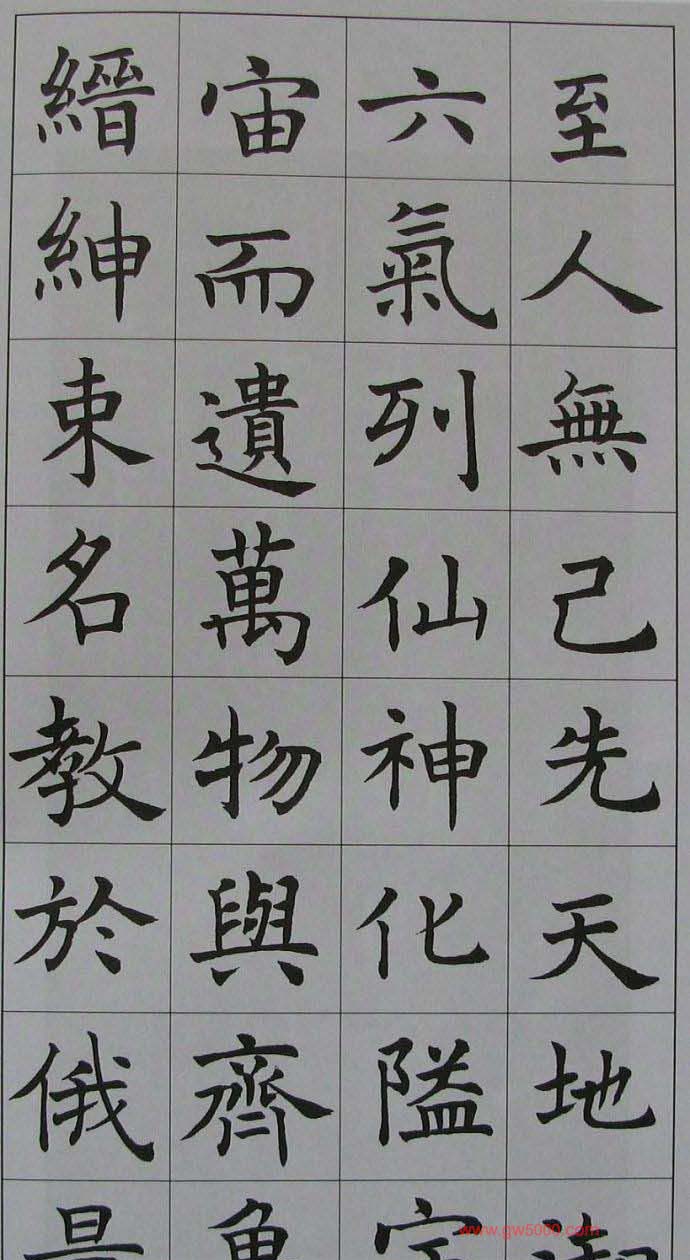 至人無己先天地
六氣列仙神化隘
宙而遺萬物與齊
縉紳束名教於俄
www.gw5000.com